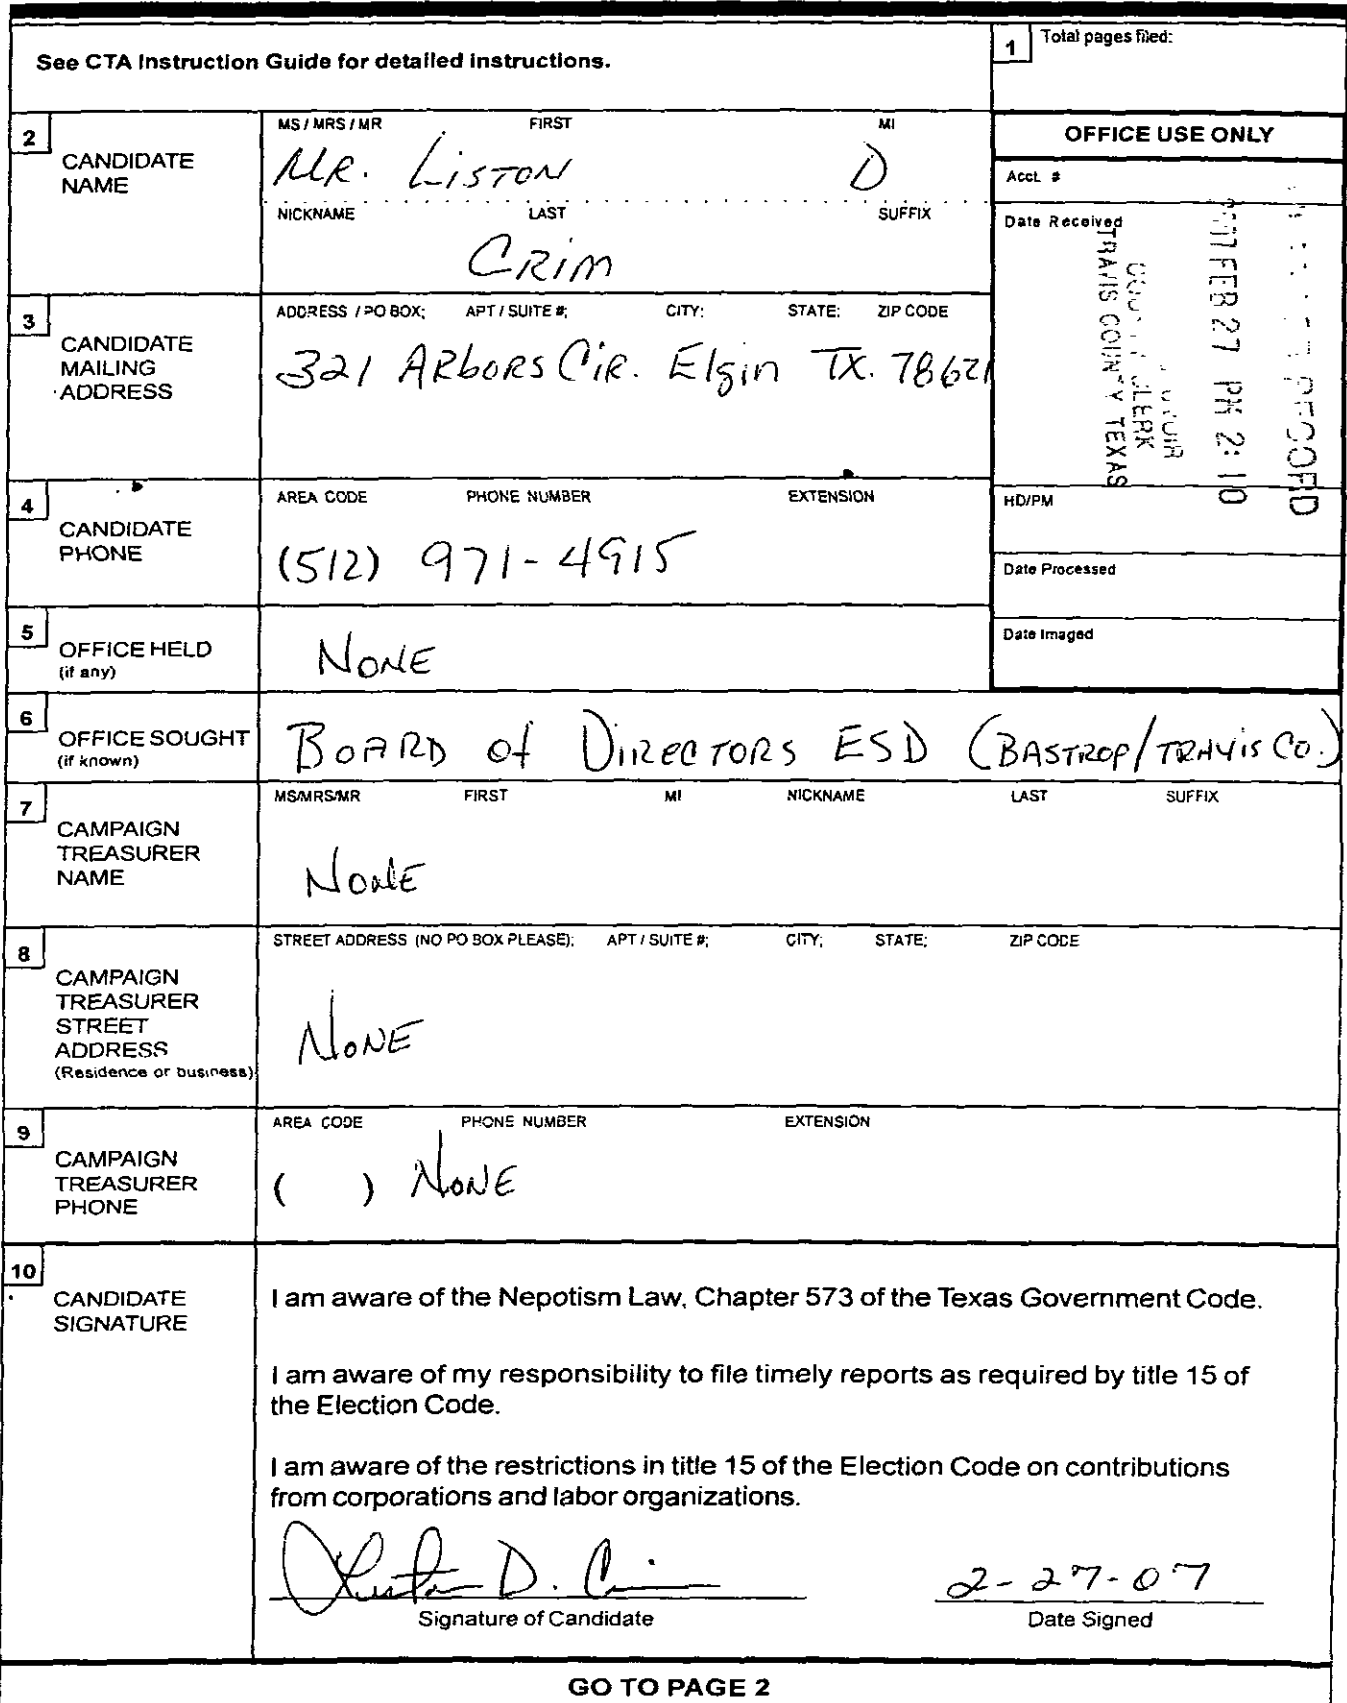 See CTA Instruction Guide for detailed instructions.
1 Total pages filed:
2 CANDIDATE NAME
MS / MRS / MR FIRST MI
MR. LISTON D
NICKNAME LAST SUFFIX
CRIM
OFFICE USE ONLY
Acct. #
Date Received
FEB 27 PM 2:10
CLERK
TRAVIS COUNTY TEXAS
HD/PM
Date Processed
Date Imaged
3 CANDIDATE MAILING ADDRESS
ADDRESS / PO BOX; APT / SUITE #; CITY; STATE; ZIP CODE
321 ARbORS CIR. Elgin TX. 78621
4 CANDIDATE PHONE
AREA CODE PHONE NUMBER EXTENSION
(512) 971-4915
5 OFFICE HELD (if any)
NONE
6 OFFICE SOUGHT (if known)
BOARD of DIRECTORS ESD (BASTROP/TRAVIS CO.)
7 CAMPAIGN TREASURER NAME
MS/MRS/MR FIRST MI NICKNAME LAST SUFFIX
NONE
8 CAMPAIGN TREASURER STREET ADDRESS (Residence or business)
STREET ADDRESS (NO PO BOX PLEASE); APT / SUITE #; CITY; STATE; ZIP CODE
NONE
9 CAMPAIGN TREASURER PHONE
AREA CODE PHONE NUMBER EXTENSION
( ) NONE
10 CANDIDATE SIGNATURE
I am aware of the Nepotism Law, Chapter 573 of the Texas Government Code.
I am aware of my responsibility to file timely reports as required by title 15 of
the Election Code.
I am aware of the restrictions in title 15 of the Election Code on contributions
from corporations and labor organizations.
Liston D. Crim 2-27-07
Signature of Candidate Date Signed
GO TO PAGE 2